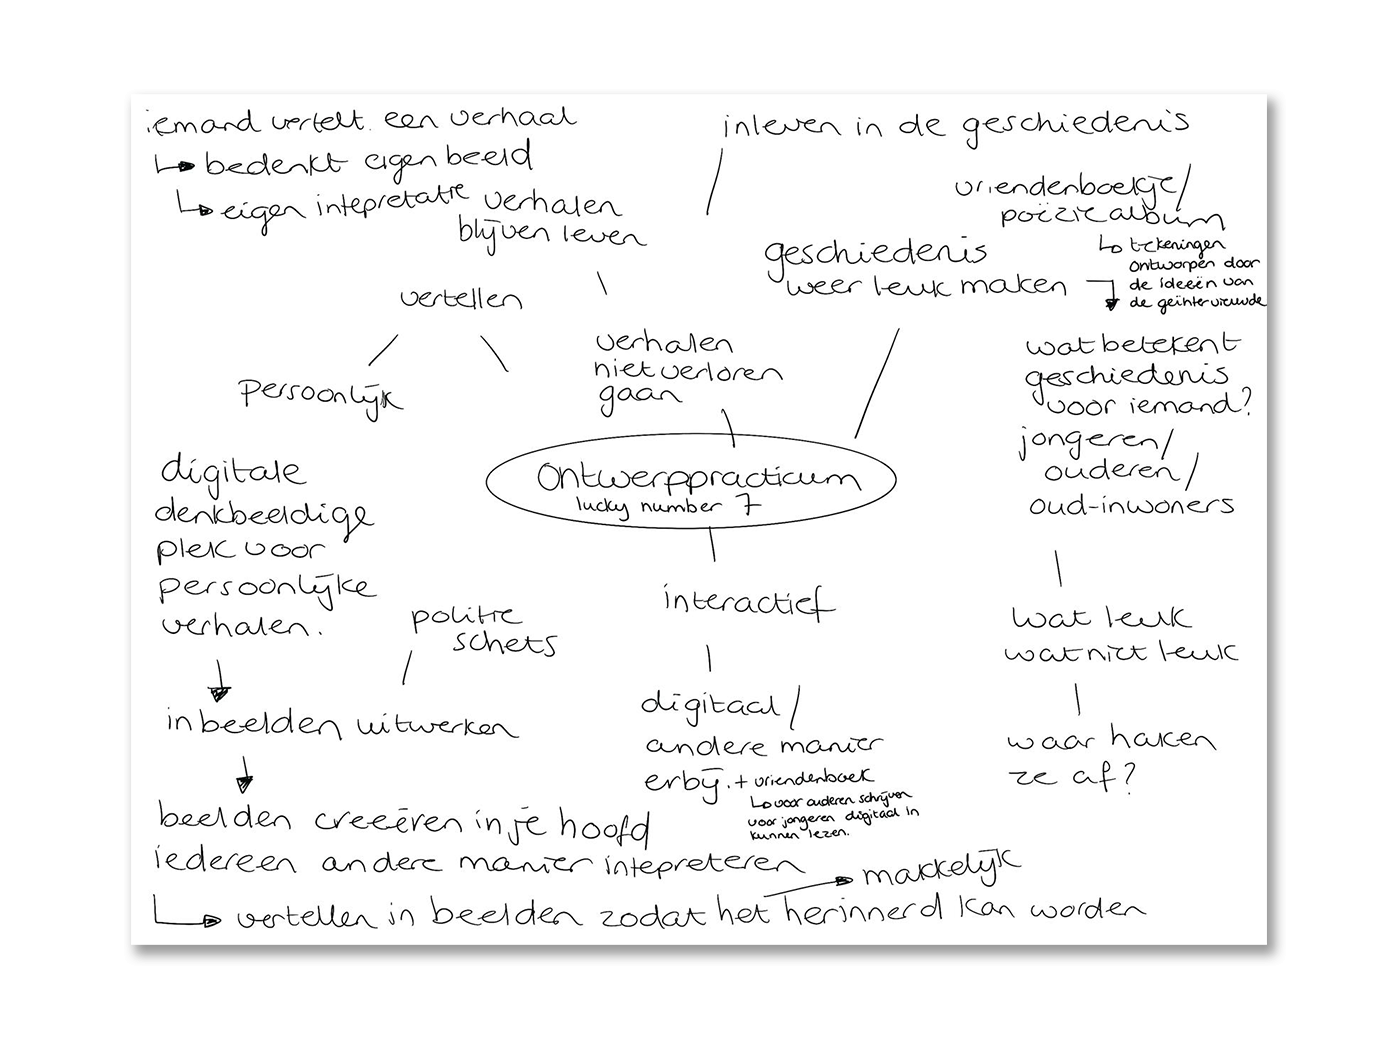 iemand vertelt een verhaal
bedenkt eigen beeld
eigen intepretatie
verhalen
blijven leven
inleven in de geschiedenis
vriendenboekje/
poëziealbum
tekeningen
ontworpen door
de ideeën van
de geïnterviewde
geschiedenis
weer leuk maken
vertellen
persoonlijk
verhalen
niet verloren
gaan
wat betekent
geschiedenis
voor iemand?
jongeren/
ouderen/
oud-inwoners
ontwerppracticum
lucky number 7
digitale
denkbeeldige
plek voor
persoonlijke
verhalen.
politie
schets
interactief
wat leuk
wat niet leuk
in beelden uitwerken
digitaal/
andere manier
erbij. + vriendenboek
voor ouderen schrijven
voor jongeren digitaal in
kunnen lezen.
waar haken
ze af?
beelden creeëren in je hoofd
iedereen andere manier intepreteren
makkelijk
vertellen in beelden zodat het herinnerd kan worden